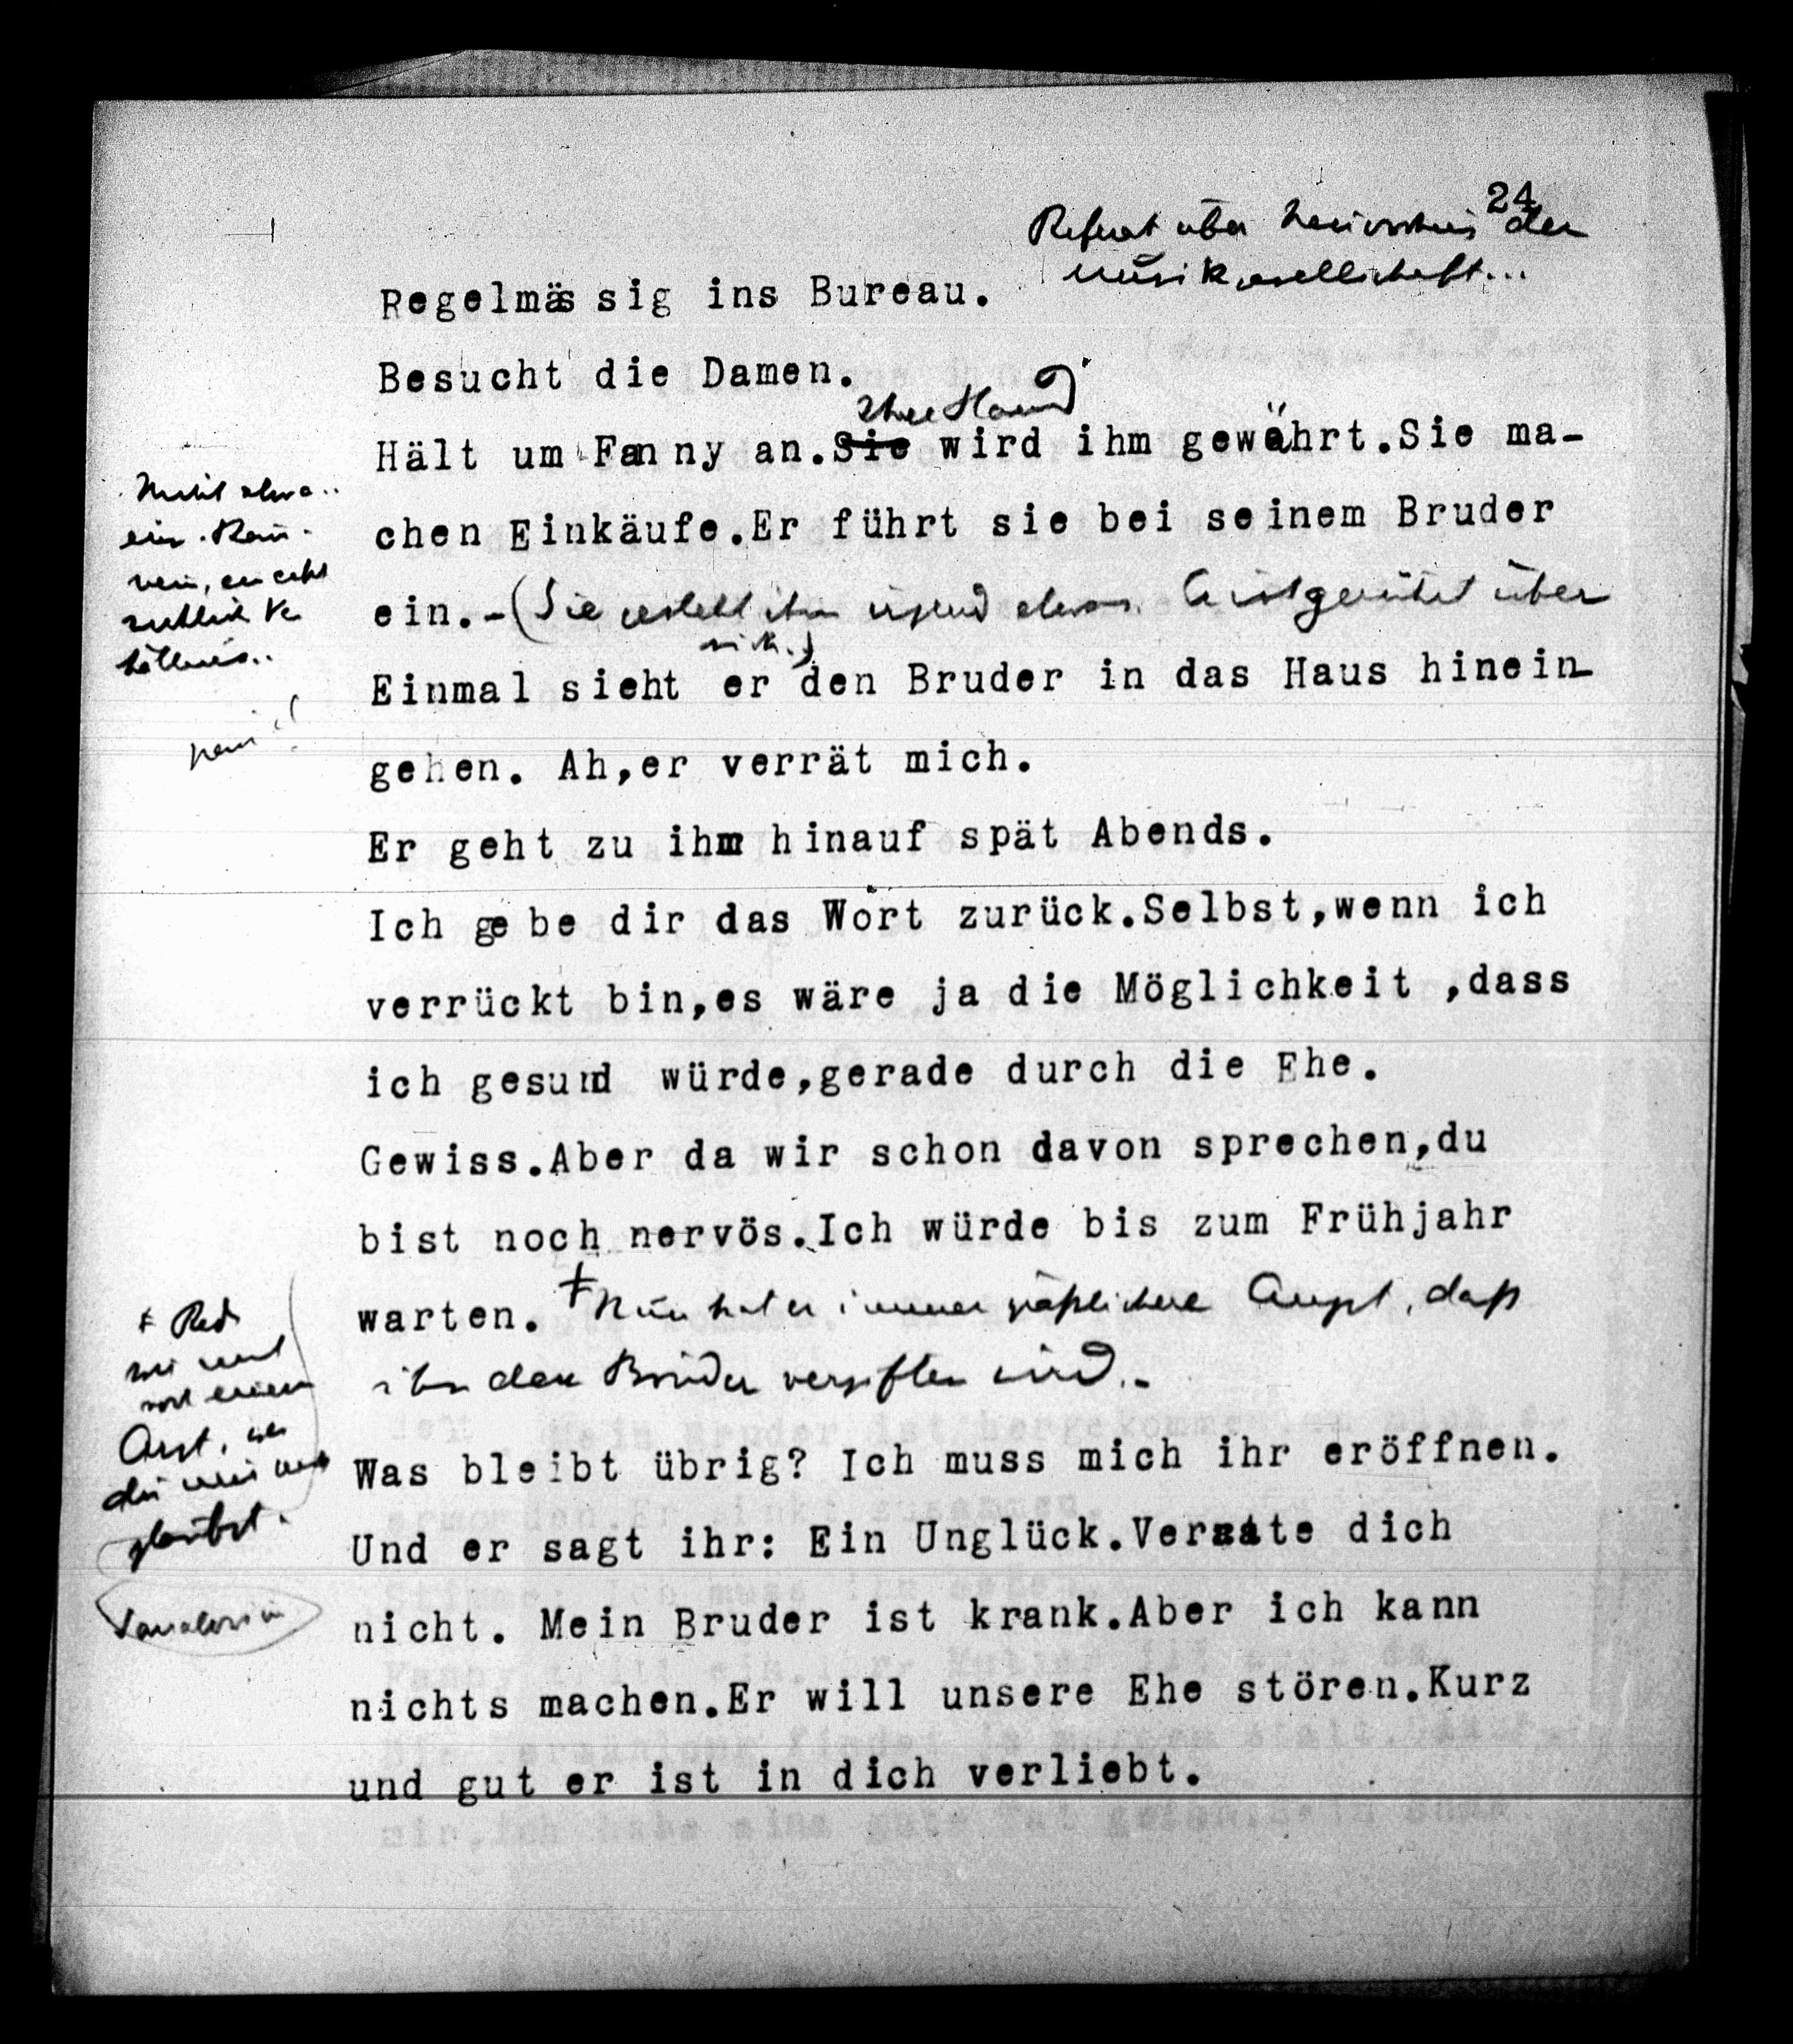 24
Referat über der
Musikgesellschaft...
Regelmässig ins Bureau.
Besucht die Damen.
Ihre Hand
Hält um Fanny an.Sie wird ihm gewährt.Sie ma-
chen Einkäufe.Er führt sie bei seinem Bruder
ein.-(Sie gesteht ihm irgend etwas. Er ist gerührt über
sich.)
Einmal sieht er den Bruder in das Haus hinein-
gehen. Ah,er verrät mich.
Er geht zu ihm hinauf spät Abends.
Ich gebe dir das Wort zurück.Selbst,wenn ich
verrückt bin,es wäre ja die Möglichkeit ,dass
ich gesund würde,gerade durch die Ehe.
Gewiss.Aber da wir schon davon sprechen,du
bist noch nervös.Ich würde bis zum Frühjahr
warten. + Nun hat er immer gräßlichere Angst, daß
ihn der Bruder vergiften wird.-
Was bleibt übrig? Ich muss mich ihr eröffnen.
Und er sagt ihr: Ein Unglück.Verrate dich
nicht. Mein Bruder ist krank.Aber ich kann
nichts machen.Er will unsere Ehe stören.Kurz
und gut er ist in dich verliebt.
Nicht etwa..
ein
nein, ein
hältnis..
nein!
+ Red
mit
einem
Arzt, wenn
du mir nicht
glaubst.
Sanatorium